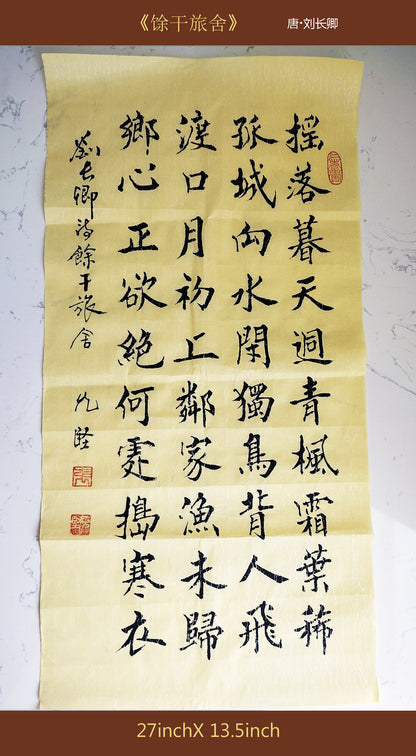 《馀干旅舍》
唐·刘长卿
搖落暮天迥青楓霜葉稀
孤城向水閑獨鳥背人飛
渡口月初上鄰家漁未歸
鄉心正欲絕何處搗寒衣
劉長卿詩餘干旅舍
27inchX 13.5inch